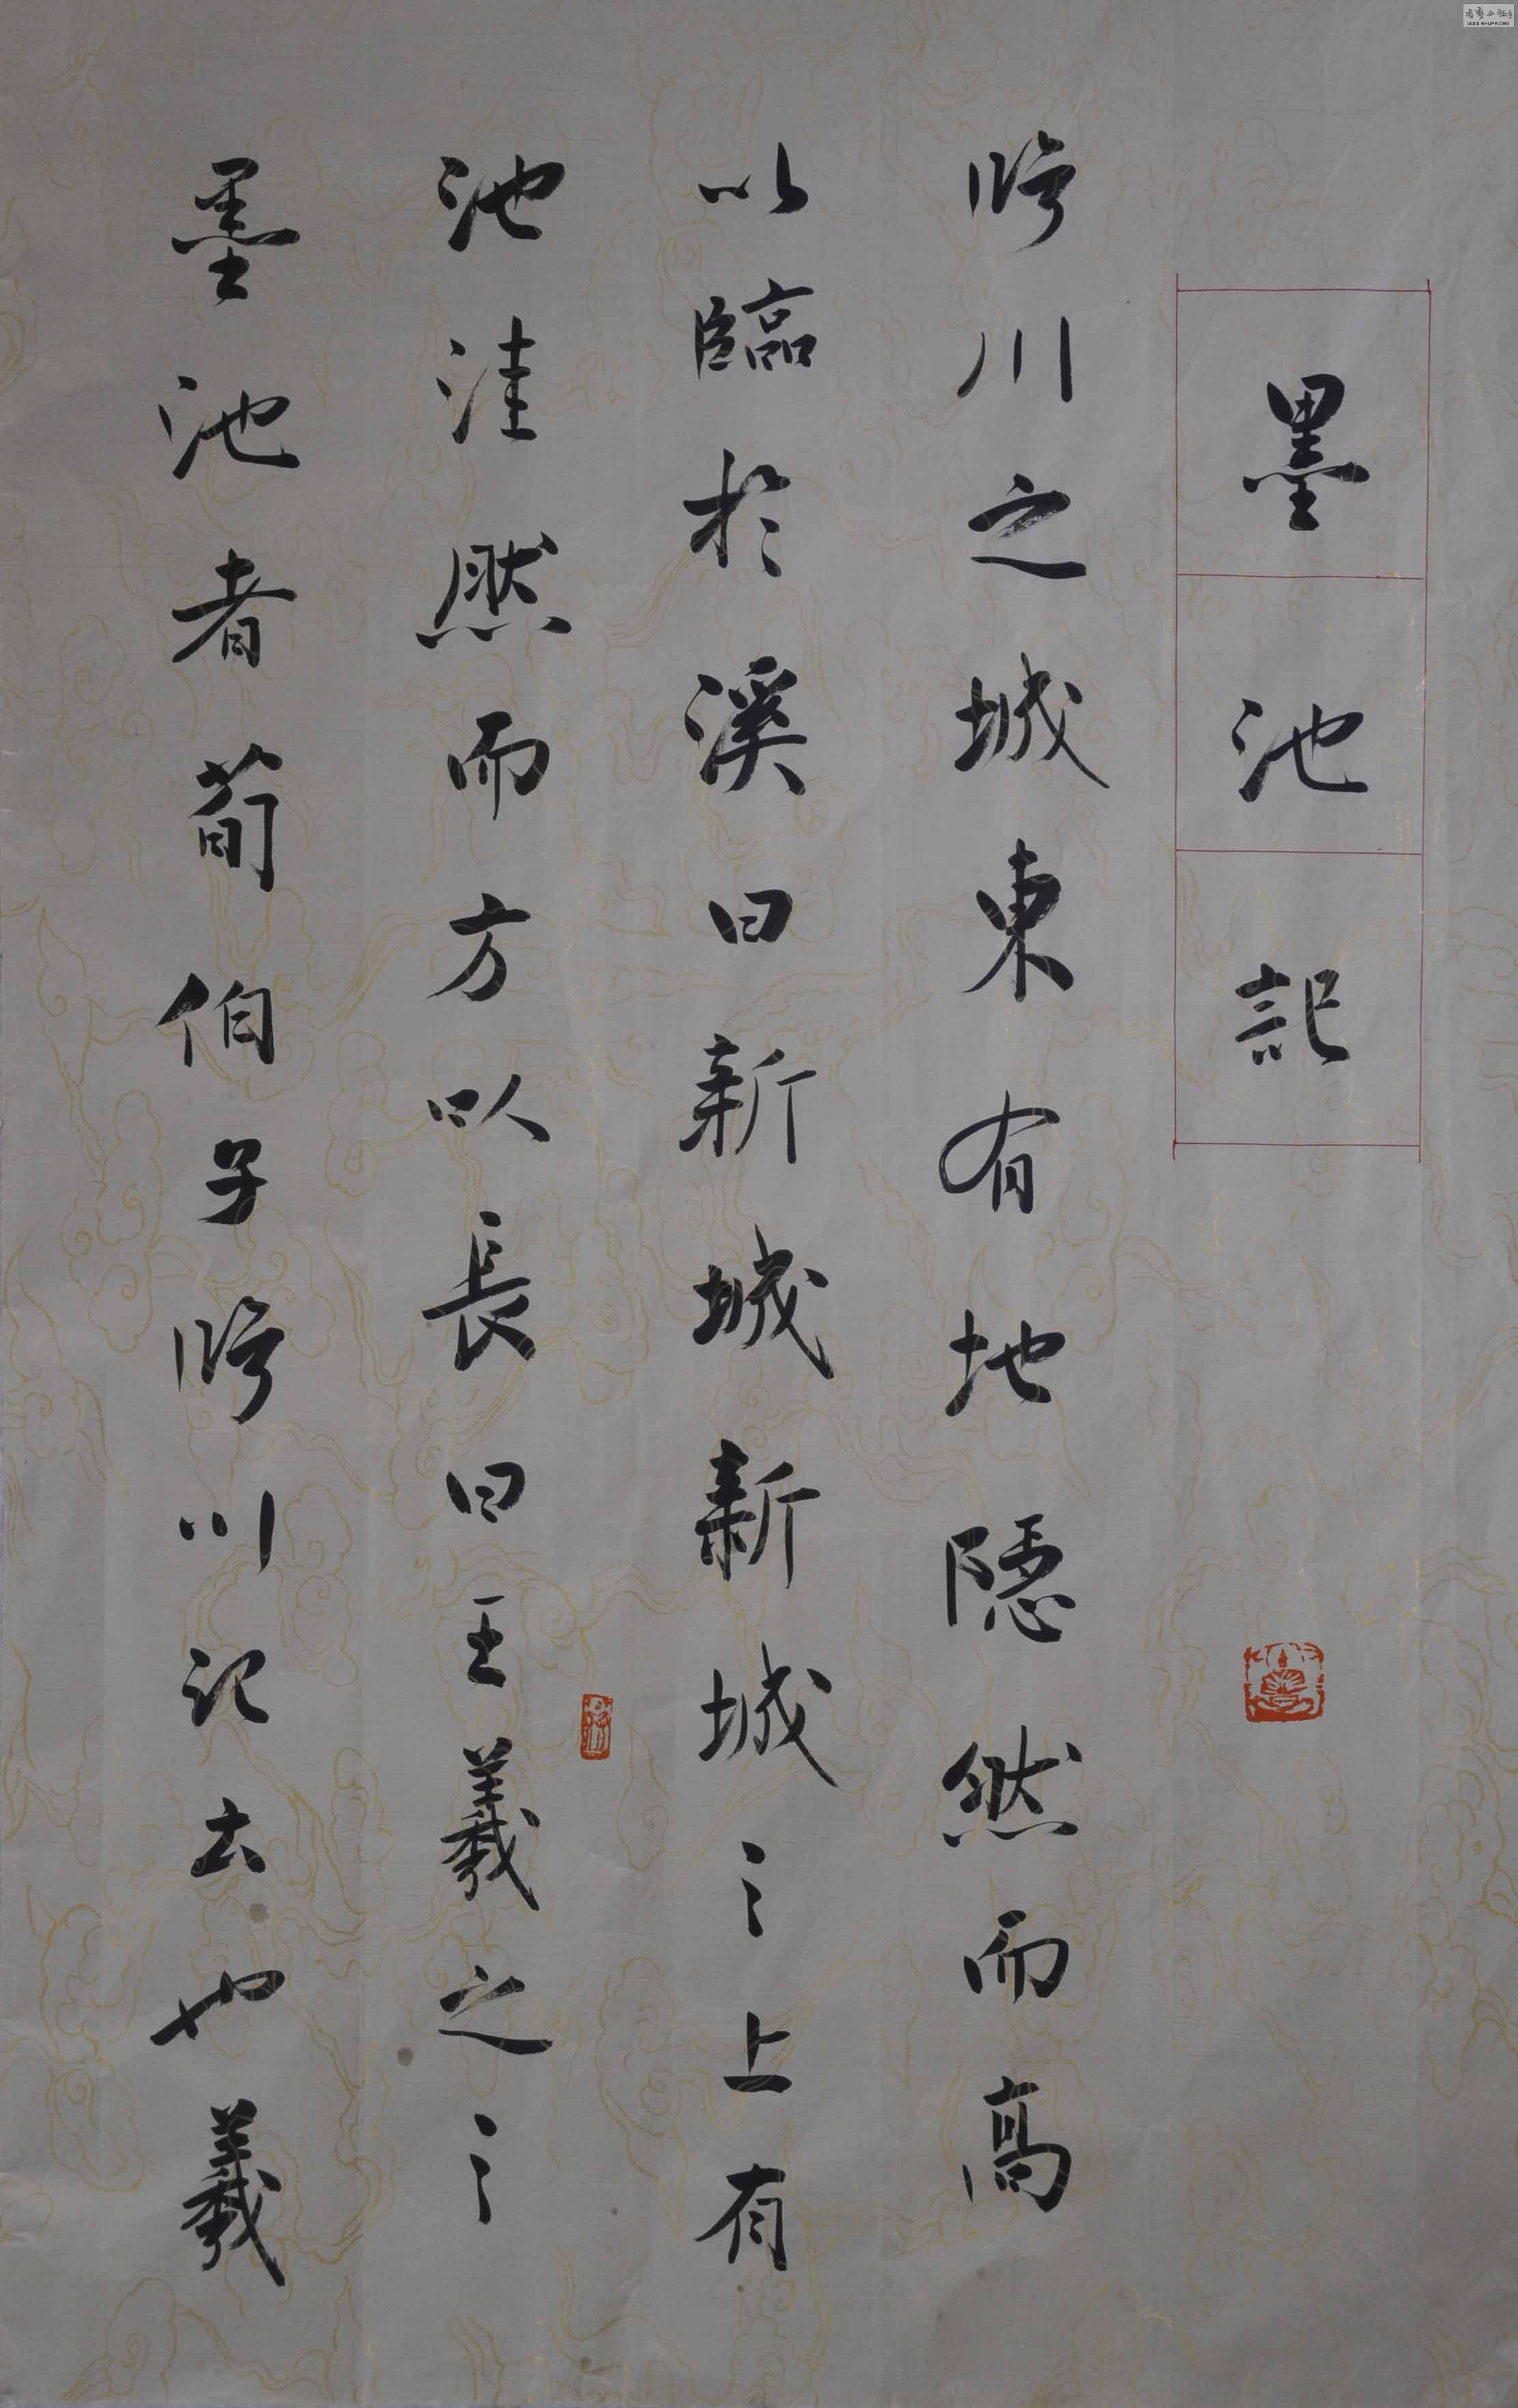 墨池記
臨川之城東有地隱然而高
以臨於溪曰新城新城之上有
池洼然而方以長曰王羲之之
墨池者荀伯子臨川記云也羲